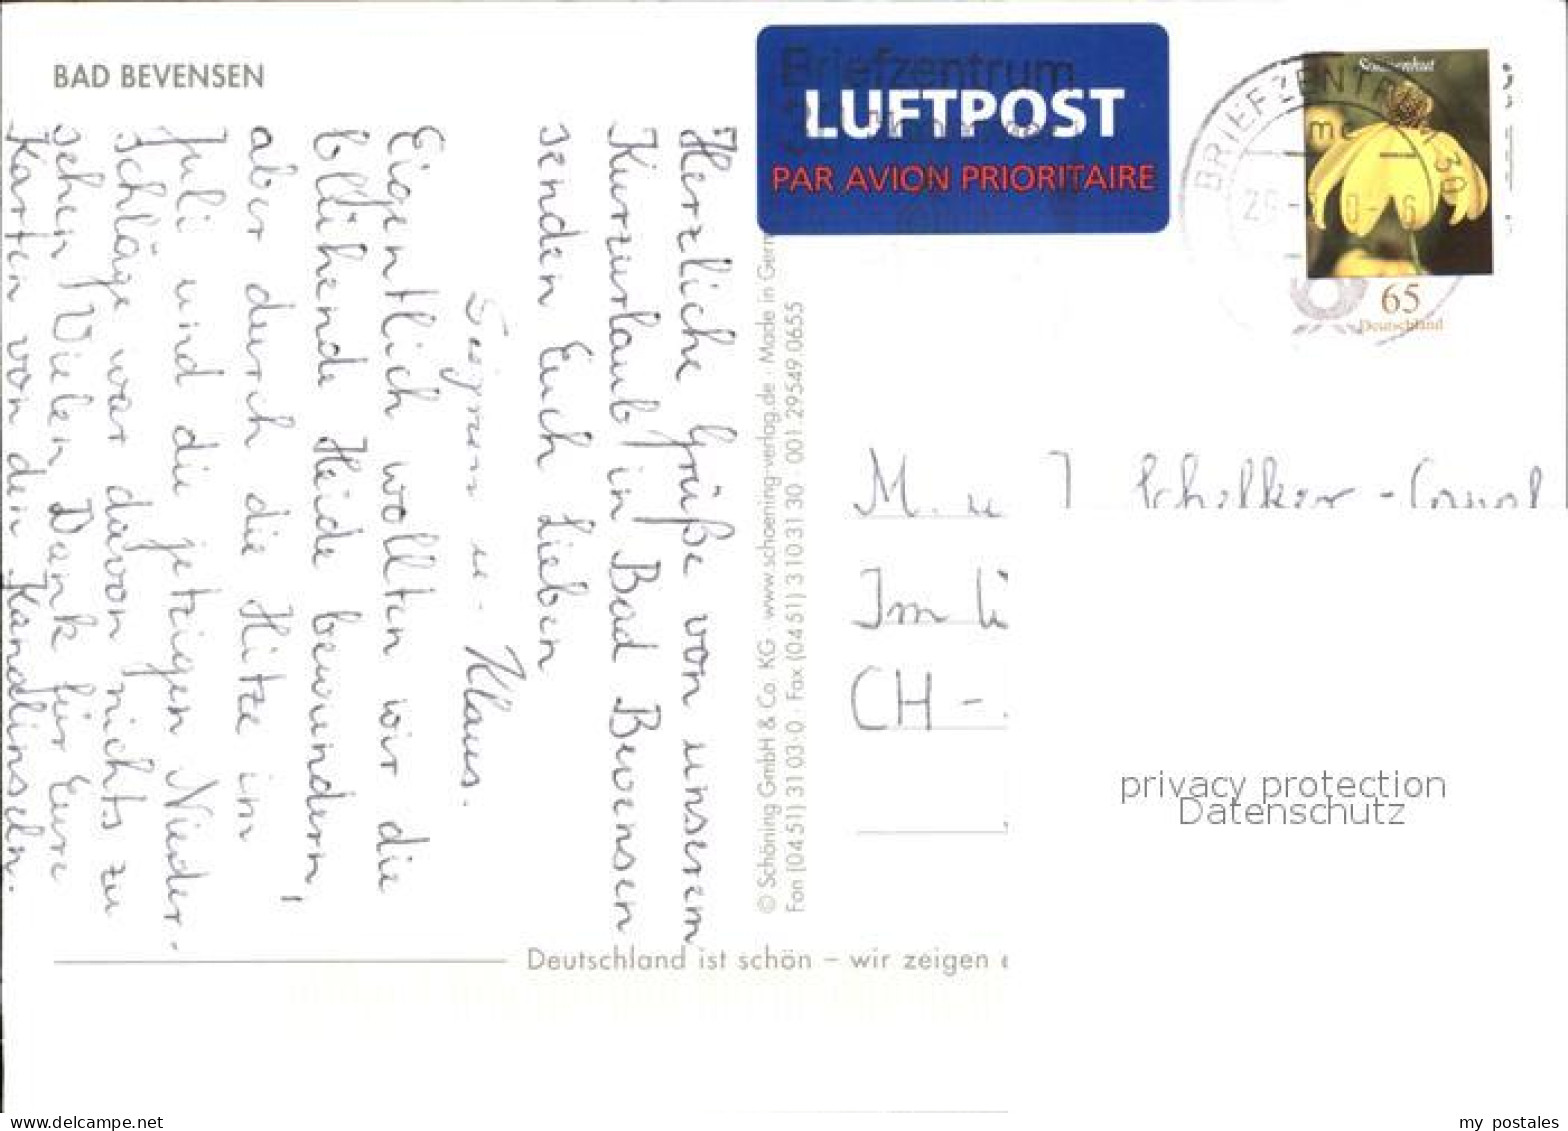 BAD BEVENSEN
LUFTPOST
PAR AVION PRIORITAIRE
Briefzentrum
BRIEFZENTRUM 30
Sonnenhut
65
Deutschland
Herzliche Grüße von unserem
Kurzurlaub in Bad Bevensen
senden Euch Lieben
Sigrun u. Klaus.
Eigentlich wollten wir die
blühende Heide bewundern,
aber durch die Hitze im
Juli und die jetzigen Nieder-
schläge war davon nichts zu
sehen. Vielen Dank für Eure
Karten von den Kanalinseln.
© Schöning GmbH & Co. KG · www.schoening-verlag.de · Made in Germ
Fon (04 51) 31 03-0 · Fax (04 51) 3 10 31 30 001 29549 0655
M. u
Im
CH -
privacy protection
Datenschutz
Deutschland ist schön – wir zeigen e
delcampe.net
my_postales